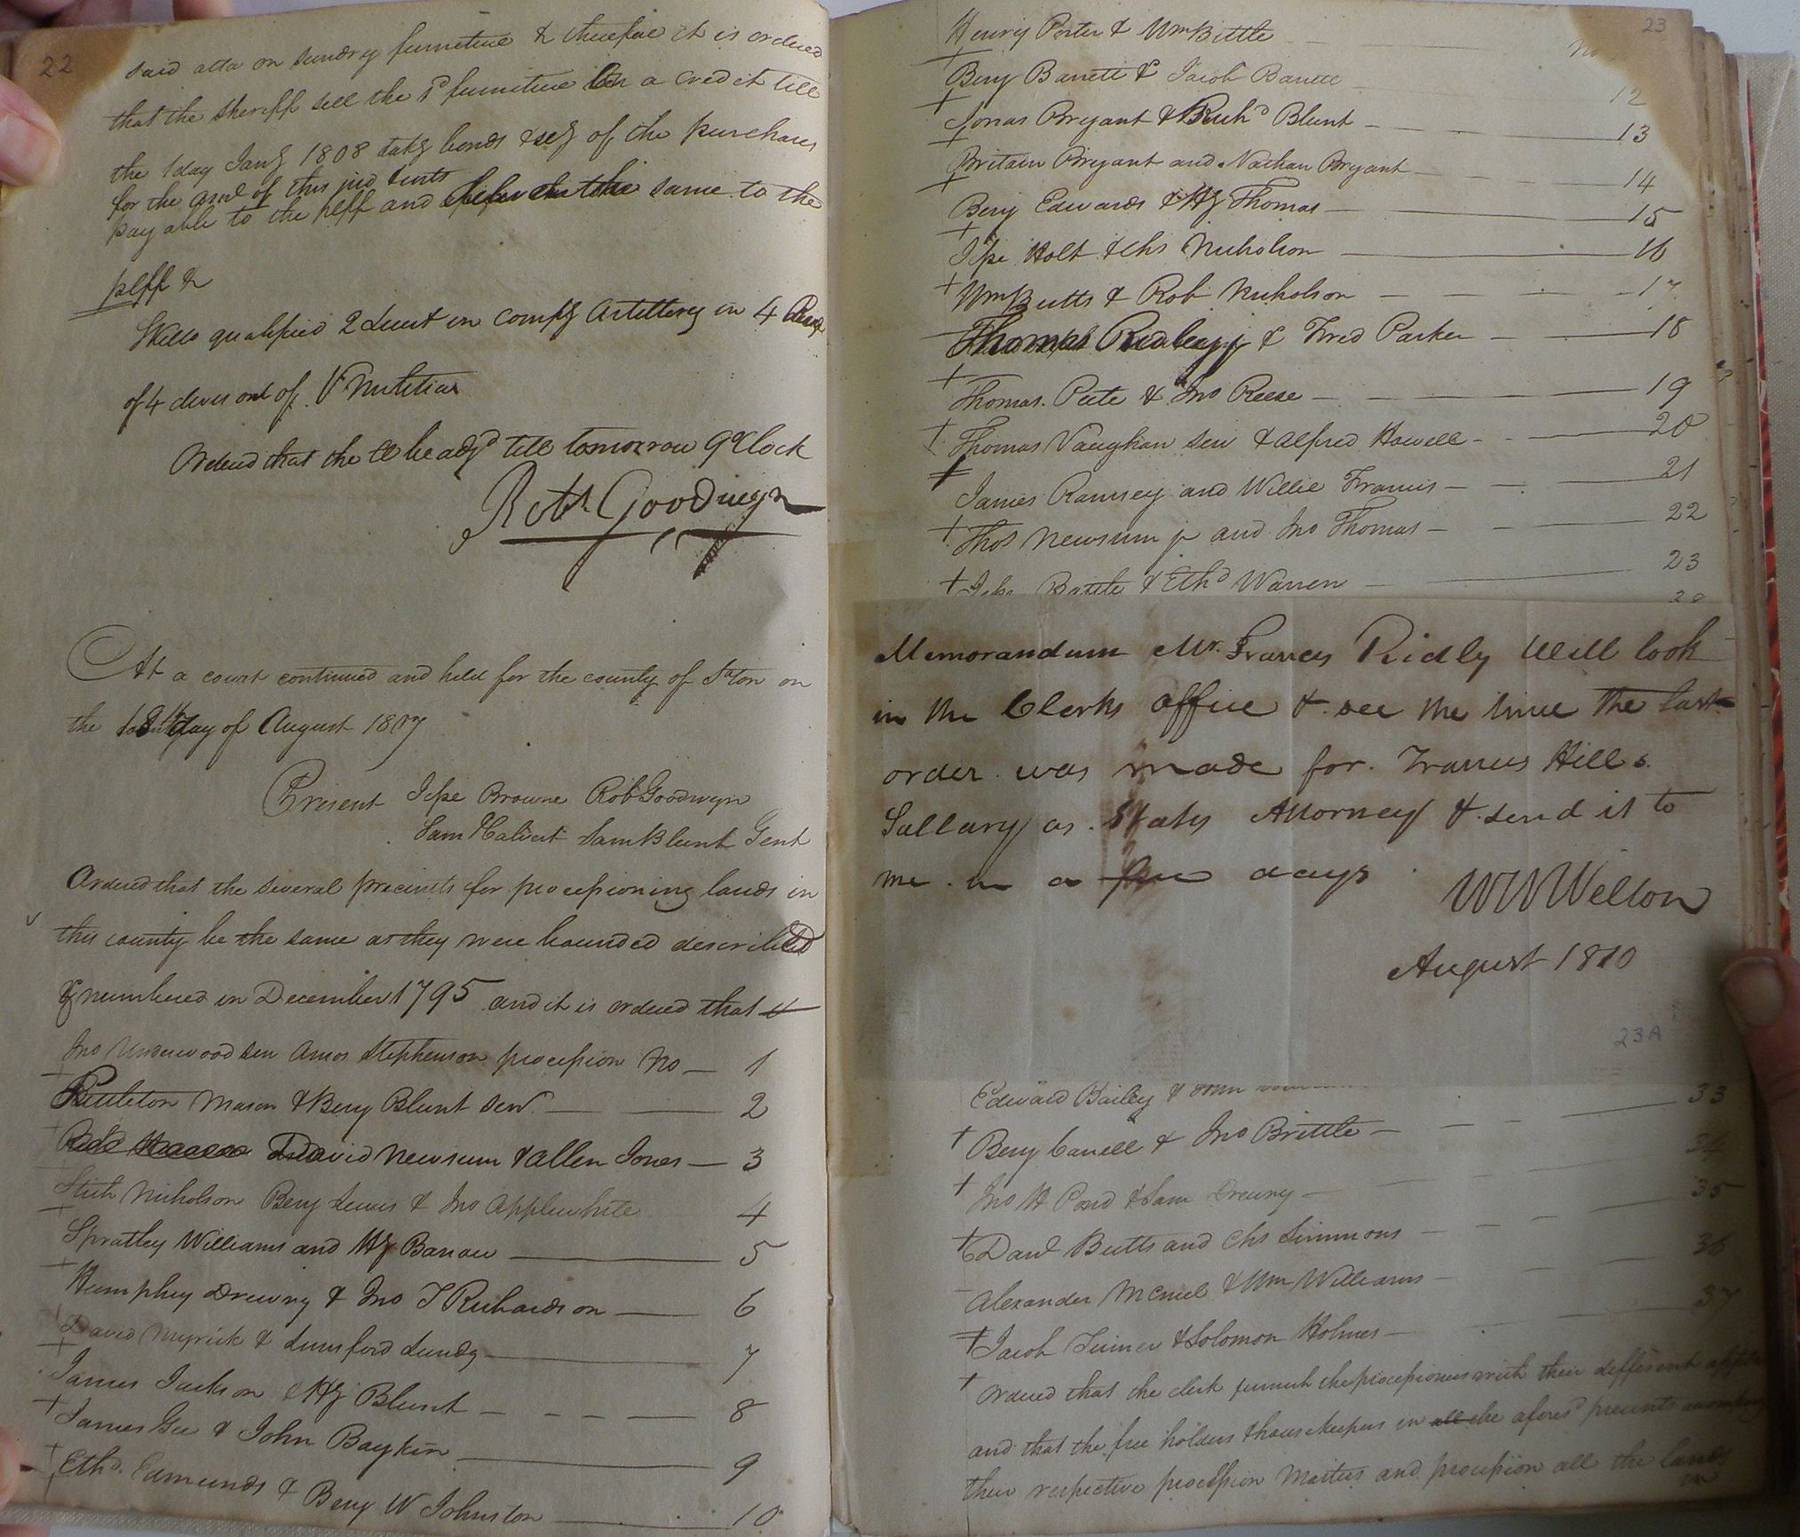 22
said atta on sundry furniture & therefore it is ordered
that the sheriff sell the sd furniture on a credit till
the 1 day Jany 1808 takg bonds & secy of the purchasers
for the amt of this jud & costs
payable to the pltff and deliver the same to the
pltff &
Wells qualified 2 Lieut in compy Artillery in 4 Regt
of 4 division of V Militia
Ordered that the Ct be adjd till tomorrow 9 oClock
Robt. Goodwyn
At a court continued and held for the county of Stton on
the 18th day of August 1807
Present Jesse Browne Rob Goodwyn
Sam Calvert Sam Blunt Gent
Ordered that the several precincts for processioning lands in
this county be the same as they were bounded described
& numbered in December 1795 and it is ordered that
Jno Underwood sen Amos Stephenson procession No — 1
Littleton Mason & Benj Blunt senr — 2
David Newsum & Allen Jones — 3
Nicholson Benj Lewis & Jno Applewhite 4
Spratley Williams and Hy Barrow — 5
Humphrey Drewry & Jno T Richardson — 6
David Myrick & Lunsford Lundy — 7
James Jackson & Hy Blunt — 8
James Gee & John Baykin — 9
Ethd. Edmunds & Benj W Johnston — 10
23
Henry Porter & Wm Bittle — No
Benj Barrett & Jacob Barrett 12
Jonas Bryant & Richd Blunt — 13
Britain Bryant and Nathan Bryant — 14
Benj Edwards & Hy Thomas — 15
Jesse Holt & Chs Nicholson — 16
Wm Butts & Rob Nicholson — 17
Thomas Ridley jr & Fred Parker — 18
Thomas Pete & Jno Reese — 19
Thomas Vaughan sen & Alfred Howell — 20
James Ramsey and Willie Francis — 21
Thos Newsum jr and Jno Thomas — 22
Jesse Battle & Ethd Warren — 23
Memorandum Mr. Francis Ridly Will look
in the Clerks office & see the time the last
order was made for Francis Hills
Sallary as States Attorney & send it to
me in a few days
W W Wilson
August 1810
23A
Edward Bailey & 33
Benj Carrell & Jno Brittle — 34
Jno H Pond & Sam Drewry — 35
Danl Butts and Chs Simmons — 36
Alexander McNiel & Wm Williams — 37
Jacob Turner & Solomon Holmes —
Ordered that the clerk furnish the processioners with their different
and that the free holders & house keepers in all the aforesd precincts
their respective procession Masters and procession all the lands
in